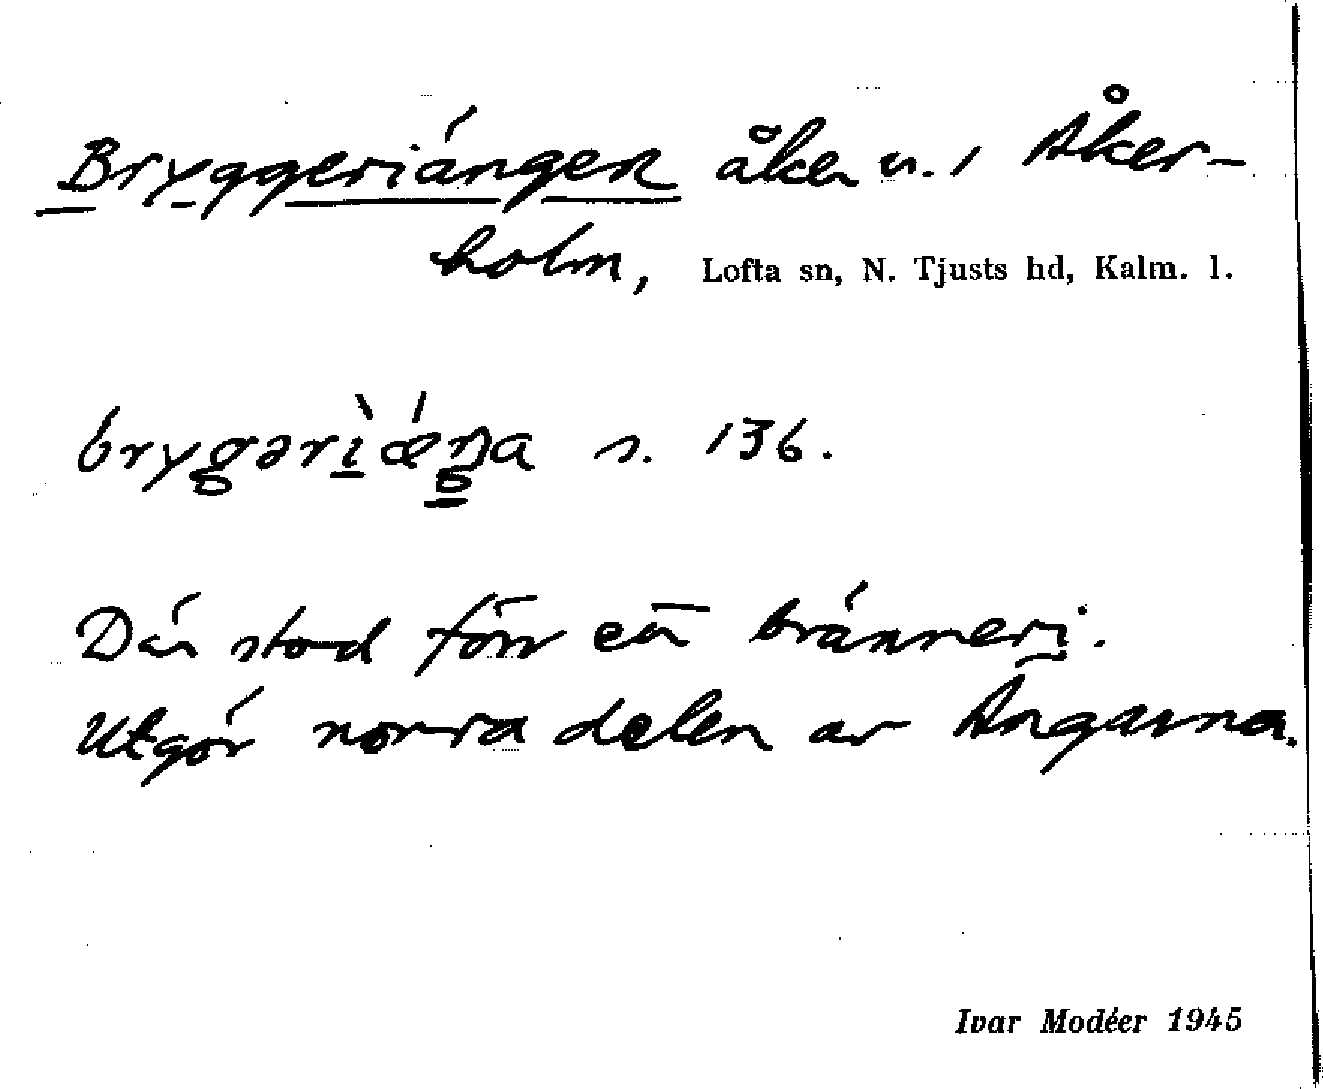 Bryggeriängen åker n. 1 Åker-
holm, Lofta sn, N. Tjusts hd, Kalm. l.
bryg̥ərìǽŋa s. 136.
Där stod förr ett bränneri.
Utgör norra delen av Ängarna.
Ivar Modéer 1945